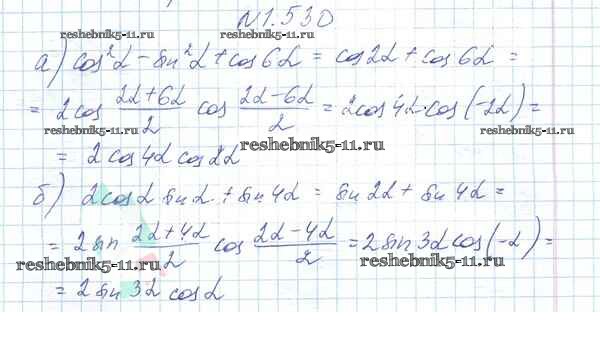 N 1.530
reshebnik5-11.ru reshebnik5-11.ru
а) cos²α − sin²α + cos 6α = cos 2α + cos 6α =
= 2 cos (2α+6α)/2 cos (2α−6α)/2 = 2 cos 4α · cos (−2α) =
reshebnik5-11.ru reshebnik5-11.ru reshebnik5-11.ru
= 2 cos 4α cos 2α
б) 2 cos α sin α + sin 4α = sin 2α + sin 4α =
= 2 sin (2α+4α)/2 cos (2α−4α)/2 = 2 sin 3α cos (−α) =
reshebnik5-11.ru reshebnik5-11.ru
= 2 sin 3α cos α